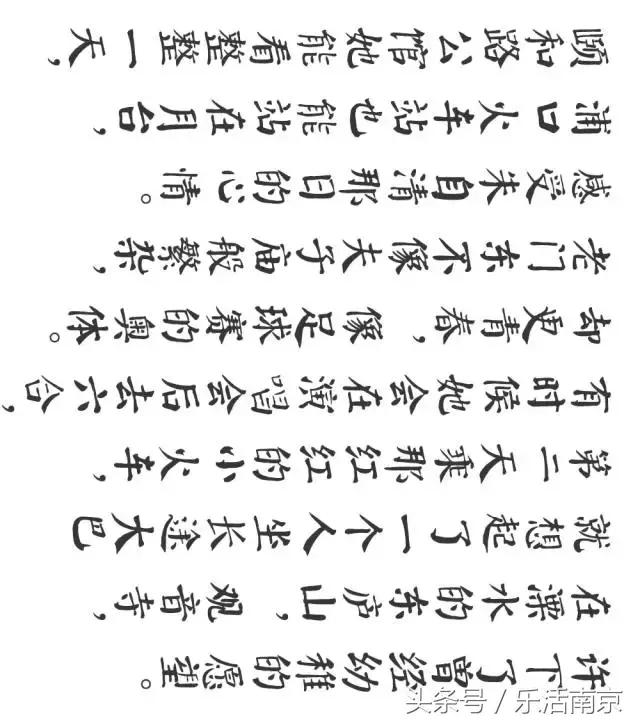 颐和路公馆她能看整整一天,
浦口火车站也能站在月台,
感受朱自清那日的心情。
老门东不像夫子庙般繁杂,
却更青春,像足球赛的奥体。
有时候她会在演唱会后去六合,
第二天乘那红红的小火车,
就想起了一个人坐长途大巴
在溧水的东庐山,观音寺,
许下了曾经幼稚的愿望。
头条号 / 乐活南京